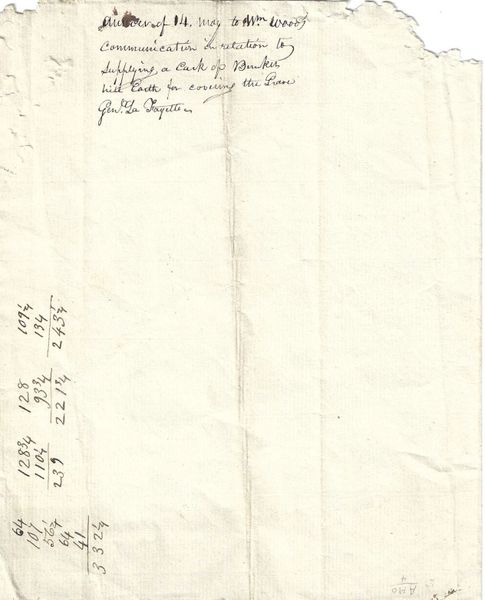 Answer of 14. May to Wm Woods
Communication in relation to
Supplying a Cask of Bunker
hill Earth for covering the Grave
Genl. La Fayette
109¼
134
243¼
128
93¾
221¾
128¾
110¼
239
64
107
56¼
64
41
332¼